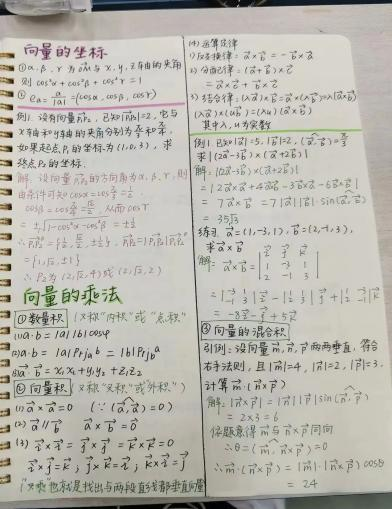 向量的坐标
①α, β, γ 为 OM 与 x, y, z 车由的夹角
则 cos²α + cos²β + cos²γ = 1
② e_a = a/|a| = (cosα, cosβ, cosγ)
例1. 设有向量 P₁P₂, 已知|P₁P₂|=2, 它与
x车由和y车由的夹角分别为 π/3 和 π/4,
如果起点P₁的坐标为(1, 0, 3), 求
终点P₂的坐标.
解: 设向量 P₁P₂ 的方向角为 α, β, γ, 则
由条件可知 cosα = cos π/3 = 1/2.
cosβ = cos π/4 = √2/2, 从而 cosγ
= ±√1-cos²α-cos²β = ±1/2
= {1, √2, ±1}
∴ P₂为 (2, √2, 4) 或 (2, √2, 2)
向量的乘法
①数量积 (又称"内积"或"点积")
(1) a·b = |a||b|cosφ
(2) a·b = |a|Prj_a b = |b|Prj_b a
(3) a·b = x₁x₂ + y₁y₂ + z₁z₂
②向量积 (又称"叉积"或"外积")
(1) a×a = 0 (∵ (a,a) = 0)
(2) a∥b a×b = 0
(3) i×i = j×j = k×k = 0
i×j = k, j×k = i, k×i = j
"叉乘"也就是找出与两段直线都垂直向量
(4) 运算定律
1) 反交换律: a×b = -b×a
2) 分配律: (a+b)×c
= a×c + b×c
3) 结合律: (λa)×b = a×(λb) = λ(a×b)
(λa)×(μb) = (λμ)(a×b)
其中λ, μ为实数
例1. 已知|a|=5, |b|=2, (a,b) = π/3
求|(2a-3b)×(a+2b)|
解: |(2a-3b)×(a+2b)|
= |2a×a + 4a×b - 3b×a - 6b×b|
= 7|a×b| = 7|a||b|·sin(a,b)
= 35√3
练习 a=(1,-3,1), b=(2,-1,3),
求a×b
= -8i - j + 5k
③向量的混合积
引例: 设向量m, n, p两两垂直, 符合
右手法则, 且|m|=4, |n|=2, |p|=3.
计算 m·(n×p)
解: |n×p| = |n||p|sin(n,p)
= 2×3 = 6
依题意得 m 与 n×p 同向
∴θ = (m, n×p) = 0
∴ m·(n×p) = |m|·|n×p| cosθ
= 24